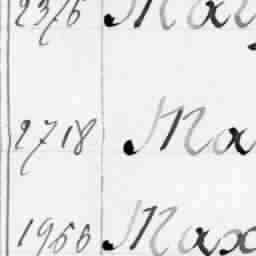 2376 May
2718 Ma
1966 Max